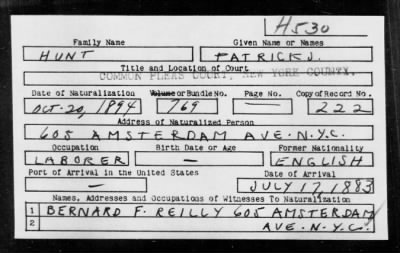 H530
Family Name Given Name or Names
HUNT PATRICK J.
Title and Location of Court
COMMON PLEAS COURT, NEW YORK COUNTY.
Date of Naturalization Volume or Bundle No. Page No. Copy of Record No.
OCT. 20, 1894 769 — 222
Address of Naturalized Person
605 AMSTERDAM AVE. N.Y.C.
Occupation Birth Date or Age Former Nationality
LABORER — ENGLISH
Port of Arrival in the United States Date of Arrival
— JULY 17, 1883
Names, Addresses and Occupations of Witnesses To Naturalization
1 BERNARD F. REILLY 605 AMSTERDAM
2 AVE. N.Y.C.